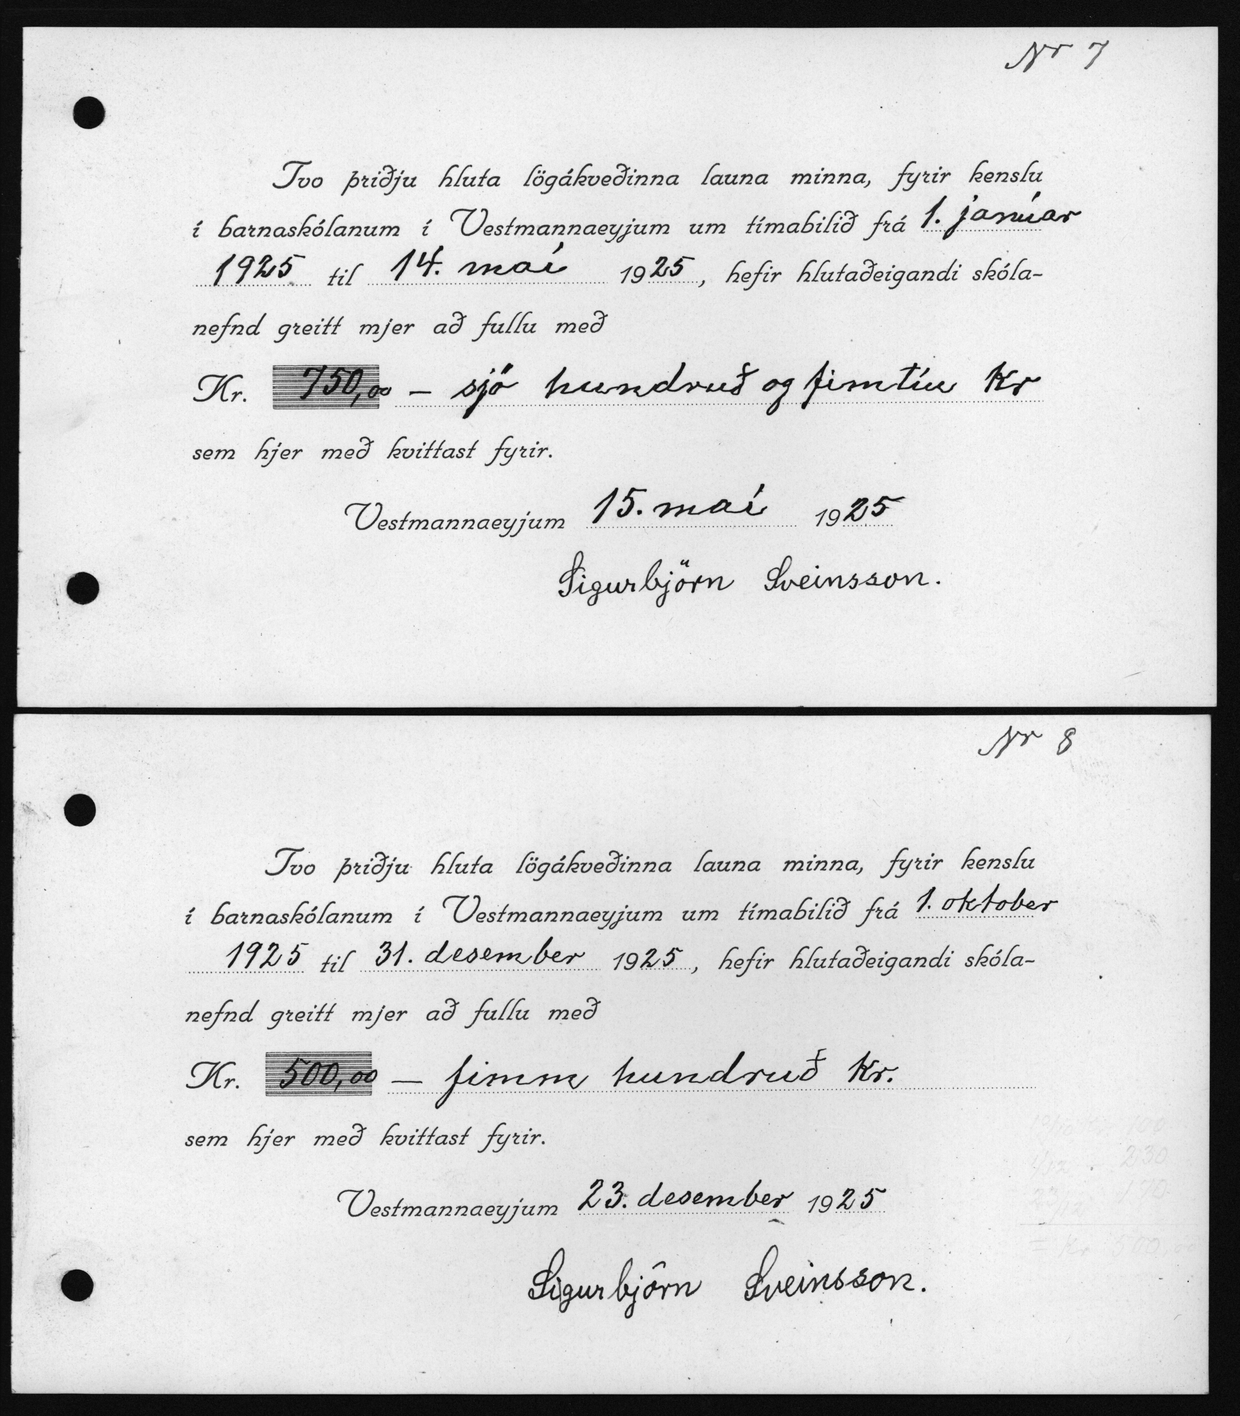 Nr 7
Tvo þriðju hluta lögákveðinna launa minna, fyrir kenslu
í barnaskólanum í Vestmannaeyjum um tímabilið frá 1. janúar
1925 til 14. maí 1925, hefir hlutaðeigandi skóla-
nefnd greitt mjer að fullu með
Kr. 750,00 — sjö hundruð og fimtíu Kr
sem hjer með kvittast fyrir.
Vestmannaeyjum 15. maí 1925
Sigurbjörn Sveinsson.
Nr 8
Tvo þriðju hluta lögákveðinna launa minna, fyrir kenslu
í barnaskólanum í Vestmannaeyjum um tímabilið frá 1. oktober
1925 til 31. desember 1925, hefir hlutaðeigandi skóla-
nefnd greitt mjer að fullu með
Kr. 500,00 — fimm hundruð Kr.
sem hjer með kvittast fyrir.
Vestmannaeyjum 23. desember 1925
Sigurbjörn Sveinsson.